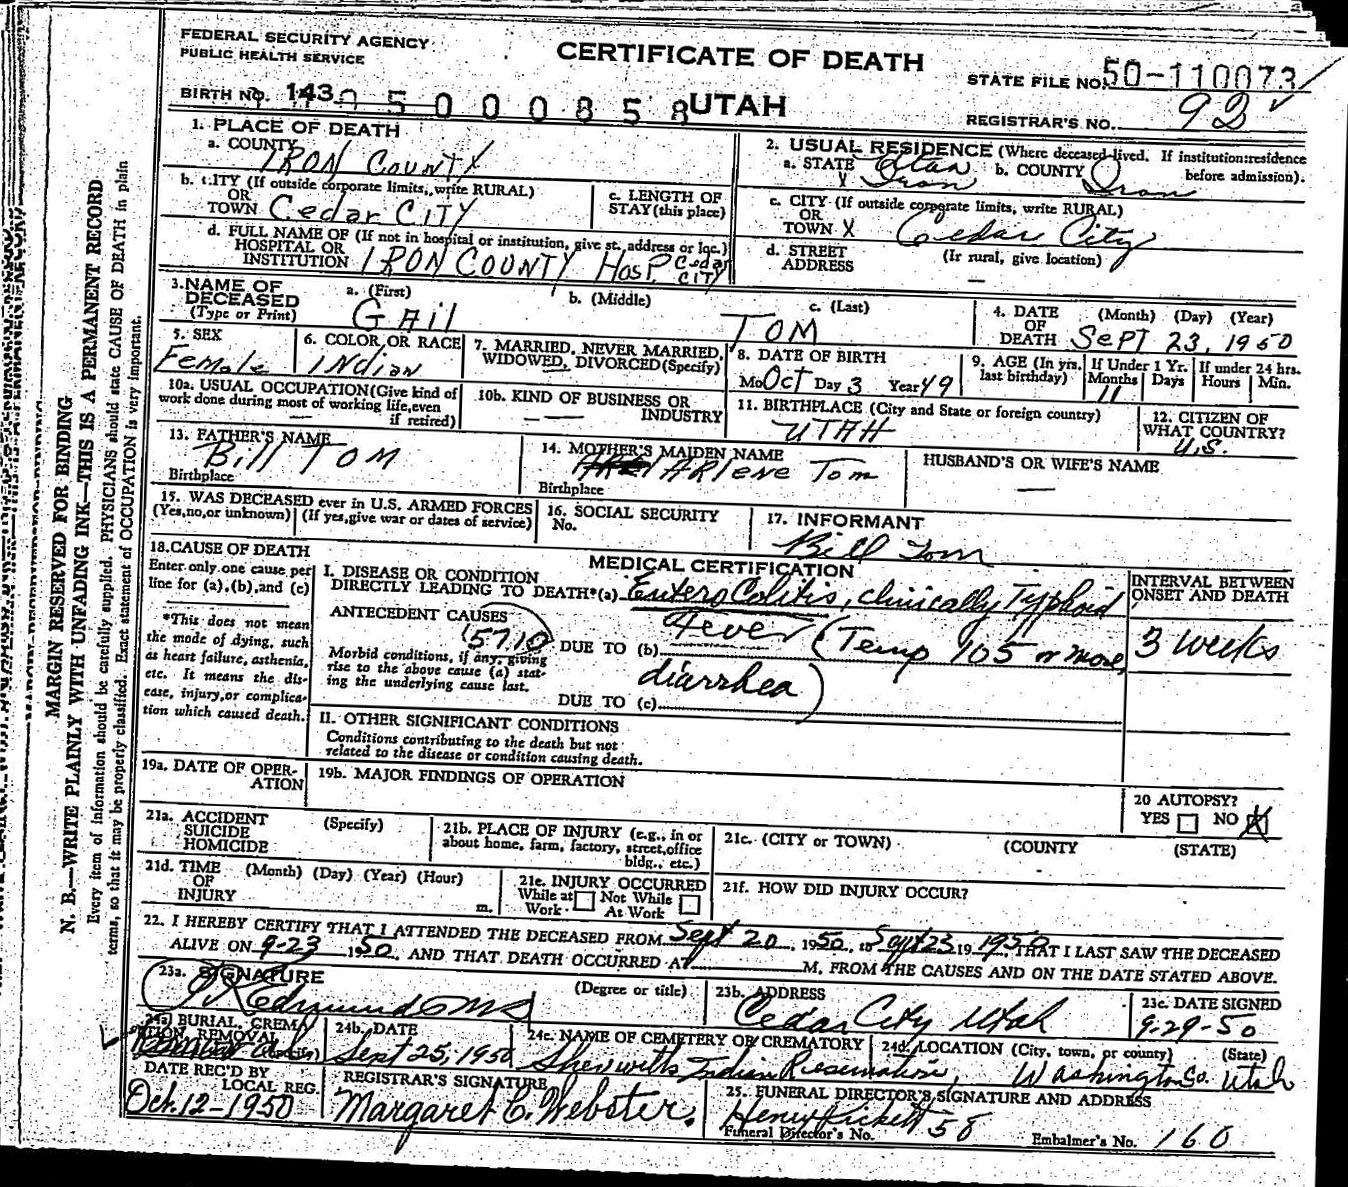 FEDERAL SECURITY AGENCY
PUBLIC HEALTH SERVICE
CERTIFICATE OF DEATH
STATE FILE NO. 50-110073
BIRTH NO. 143
0 5 0 0 0 0 8 5 8
UTAH
REGISTRAR'S NO. 92
1. PLACE OF DEATH
a. COUNTY IRON COUNTY
2. USUAL RESIDENCE (Where deceased lived. If institution: residence before admission).
a. STATE Utah b. COUNTY Iron
Iron
b. CITY (If outside corporate limits, write RURAL)
OR
TOWN Cedar CITY
c. LENGTH OF STAY (this place)
c. CITY (If outside corporate limits, write RURAL)
OR
TOWN X Cedar City
d. FULL NAME OF (If not in hospital or institution, give st. address or loc.)
HOSPITAL OR
INSTITUTION IRON COUNTY HOSP. Cedar CITY
d. STREET ADDRESS (If rural, give location)
—
3. NAME OF DECEASED (Type or Print)
a. (First) b. (Middle) c. (Last)
GAil TOM
4. DATE OF DEATH (Month) (Day) (Year)
SepT 23, 1950
5. SEX
Female
6. COLOR OR RACE
INdian
7. MARRIED, NEVER MARRIED, WIDOWED, DIVORCED (Specify)
—
8. DATE OF BIRTH
Mo Oct Day 3 Year 49
9. AGE (In yrs. last birthday)
If Under 1 Yr. Months 11 Days
If under 24 hrs. Hours Min.
10a. USUAL OCCUPATION (Give kind of work done during most of working life, even if retired)
—
10b. KIND OF BUSINESS OR INDUSTRY
— —
11. BIRTHPLACE (City and State or foreign country)
UTAH
12. CITIZEN OF WHAT COUNTRY?
U.S.
13. FATHER'S NAME
Bill TOM
Birthplace
14. MOTHER'S MAIDEN NAME
ARlene Tom
Birthplace
HUSBAND'S OR WIFE'S NAME
—
15. WAS DECEASED ever in U.S. ARMED FORCES
(Yes, no, or unknown) (If yes, give war or dates of service)
16. SOCIAL SECURITY No.
17. INFORMANT
Bill Tom
18. CAUSE OF DEATH
Enter only one cause per line for (a), (b), and (c)
*This does not mean the mode of dying, such as heart failure, asthenia, etc. It means the disease, injury, or complication which caused death.
MEDICAL CERTIFICATION
I. DISEASE OR CONDITION DIRECTLY LEADING TO DEATH*(a) EnteroColitis, clinically Typhoid
ANTECEDENT CAUSES
5710
Morbid conditions, if any, giving rise to the above cause (a) stating the underlying cause last.
DUE TO (b) Fever (Temp 105 or more,
DUE TO (c) diarrhea)
INTERVAL BETWEEN ONSET AND DEATH
3 weeks
II. OTHER SIGNIFICANT CONDITIONS
Conditions contributing to the death but not related to the disease or condition causing death.
19a. DATE OF OPERATION
19b. MAJOR FINDINGS OF OPERATION
20 AUTOPSY?
YES NO X
21a. ACCIDENT SUICIDE HOMICIDE (Specify)
21b. PLACE OF INJURY (e.g., in or about home, farm, factory, street, office bldg., etc.)
21c. (CITY or TOWN) (COUNTY (STATE)
21d. TIME OF INJURY (Month) (Day) (Year) (Hour) m.
21e. INJURY OCCURRED
While at Work Not While At Work
21f. HOW DID INJURY OCCUR?
22. I HEREBY CERTIFY THAT I ATTENDED THE DECEASED FROM Sept 20, 1950, to Sept 23 19 1950, THAT I LAST SAW THE DECEASED
ALIVE ON 9-23 1950, AND THAT DEATH OCCURRED AT M, FROM THE CAUSES AND ON THE DATE STATED ABOVE.
23a. SIGNATURE (Degree or title)
Edmunds MD
23b. ADDRESS
Cedar City Utah
23c. DATE SIGNED
9-29-50
24a) BURIAL, CREMATION, REMOVAL (Specify)
24b. DATE
Sept 25, 1950
24c. NAME OF CEMETERY OR CREMATORY
Shevwitts Indian Reservation,
24d. LOCATION (City, town, or county) (State)
Washington Co. Utah
DATE REC'D BY LOCAL REG.
Oct. 12-1950
REGISTRAR'S SIGNATURE
Margaret C. Webster.
25. FUNERAL DIRECTOR'S SIGNATURE AND ADDRESS
Henry 58
Funeral Director's No.
Embalmer's No. 160
MARGIN RESERVED FOR BINDING
N. B.—WRITE PLAINLY WITH UNFADING INK—THIS IS A PERMANENT RECORD
Every item of information should be carefully supplied. PHYSICIANS should state CAUSE OF DEATH in plain
terms, so that it may be properly classified. Exact statement of OCCUPATION is very important.